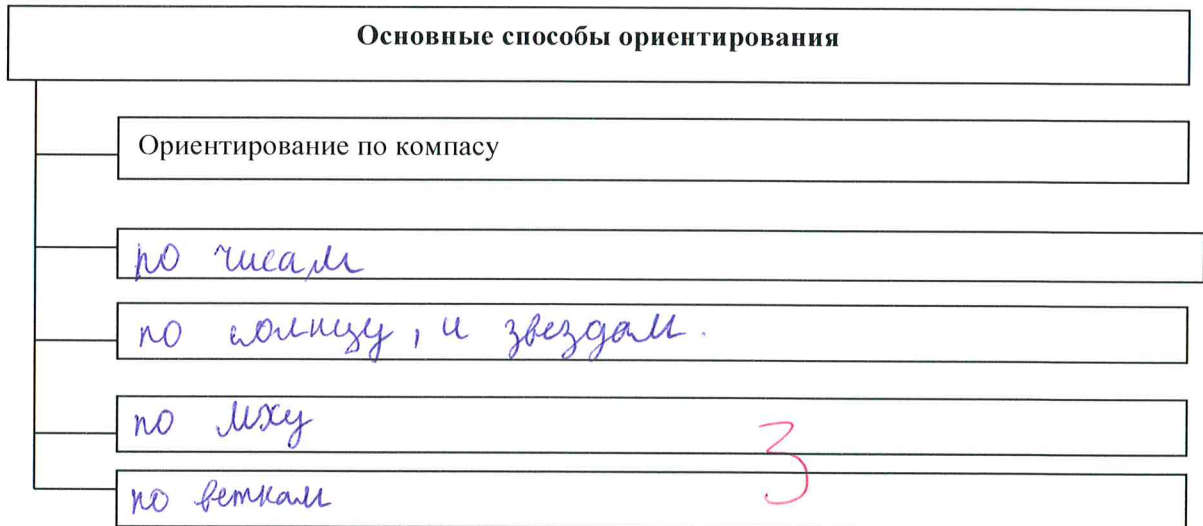 Основные способы ориентирования
Ориентирование по компасу
по чисам
по солнцу, и звездам.
по мху
3
по веткам